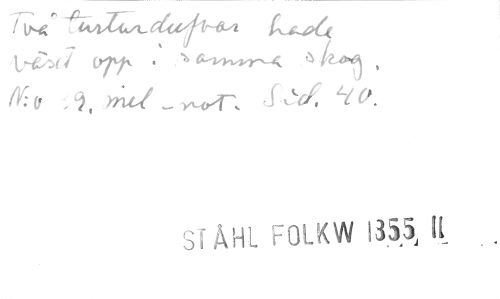 Två turturdufvor hade
växt opp i samma skog.
N:o 19. mel-not. Sid. 40.
STÅHL FOLKW 1355, II